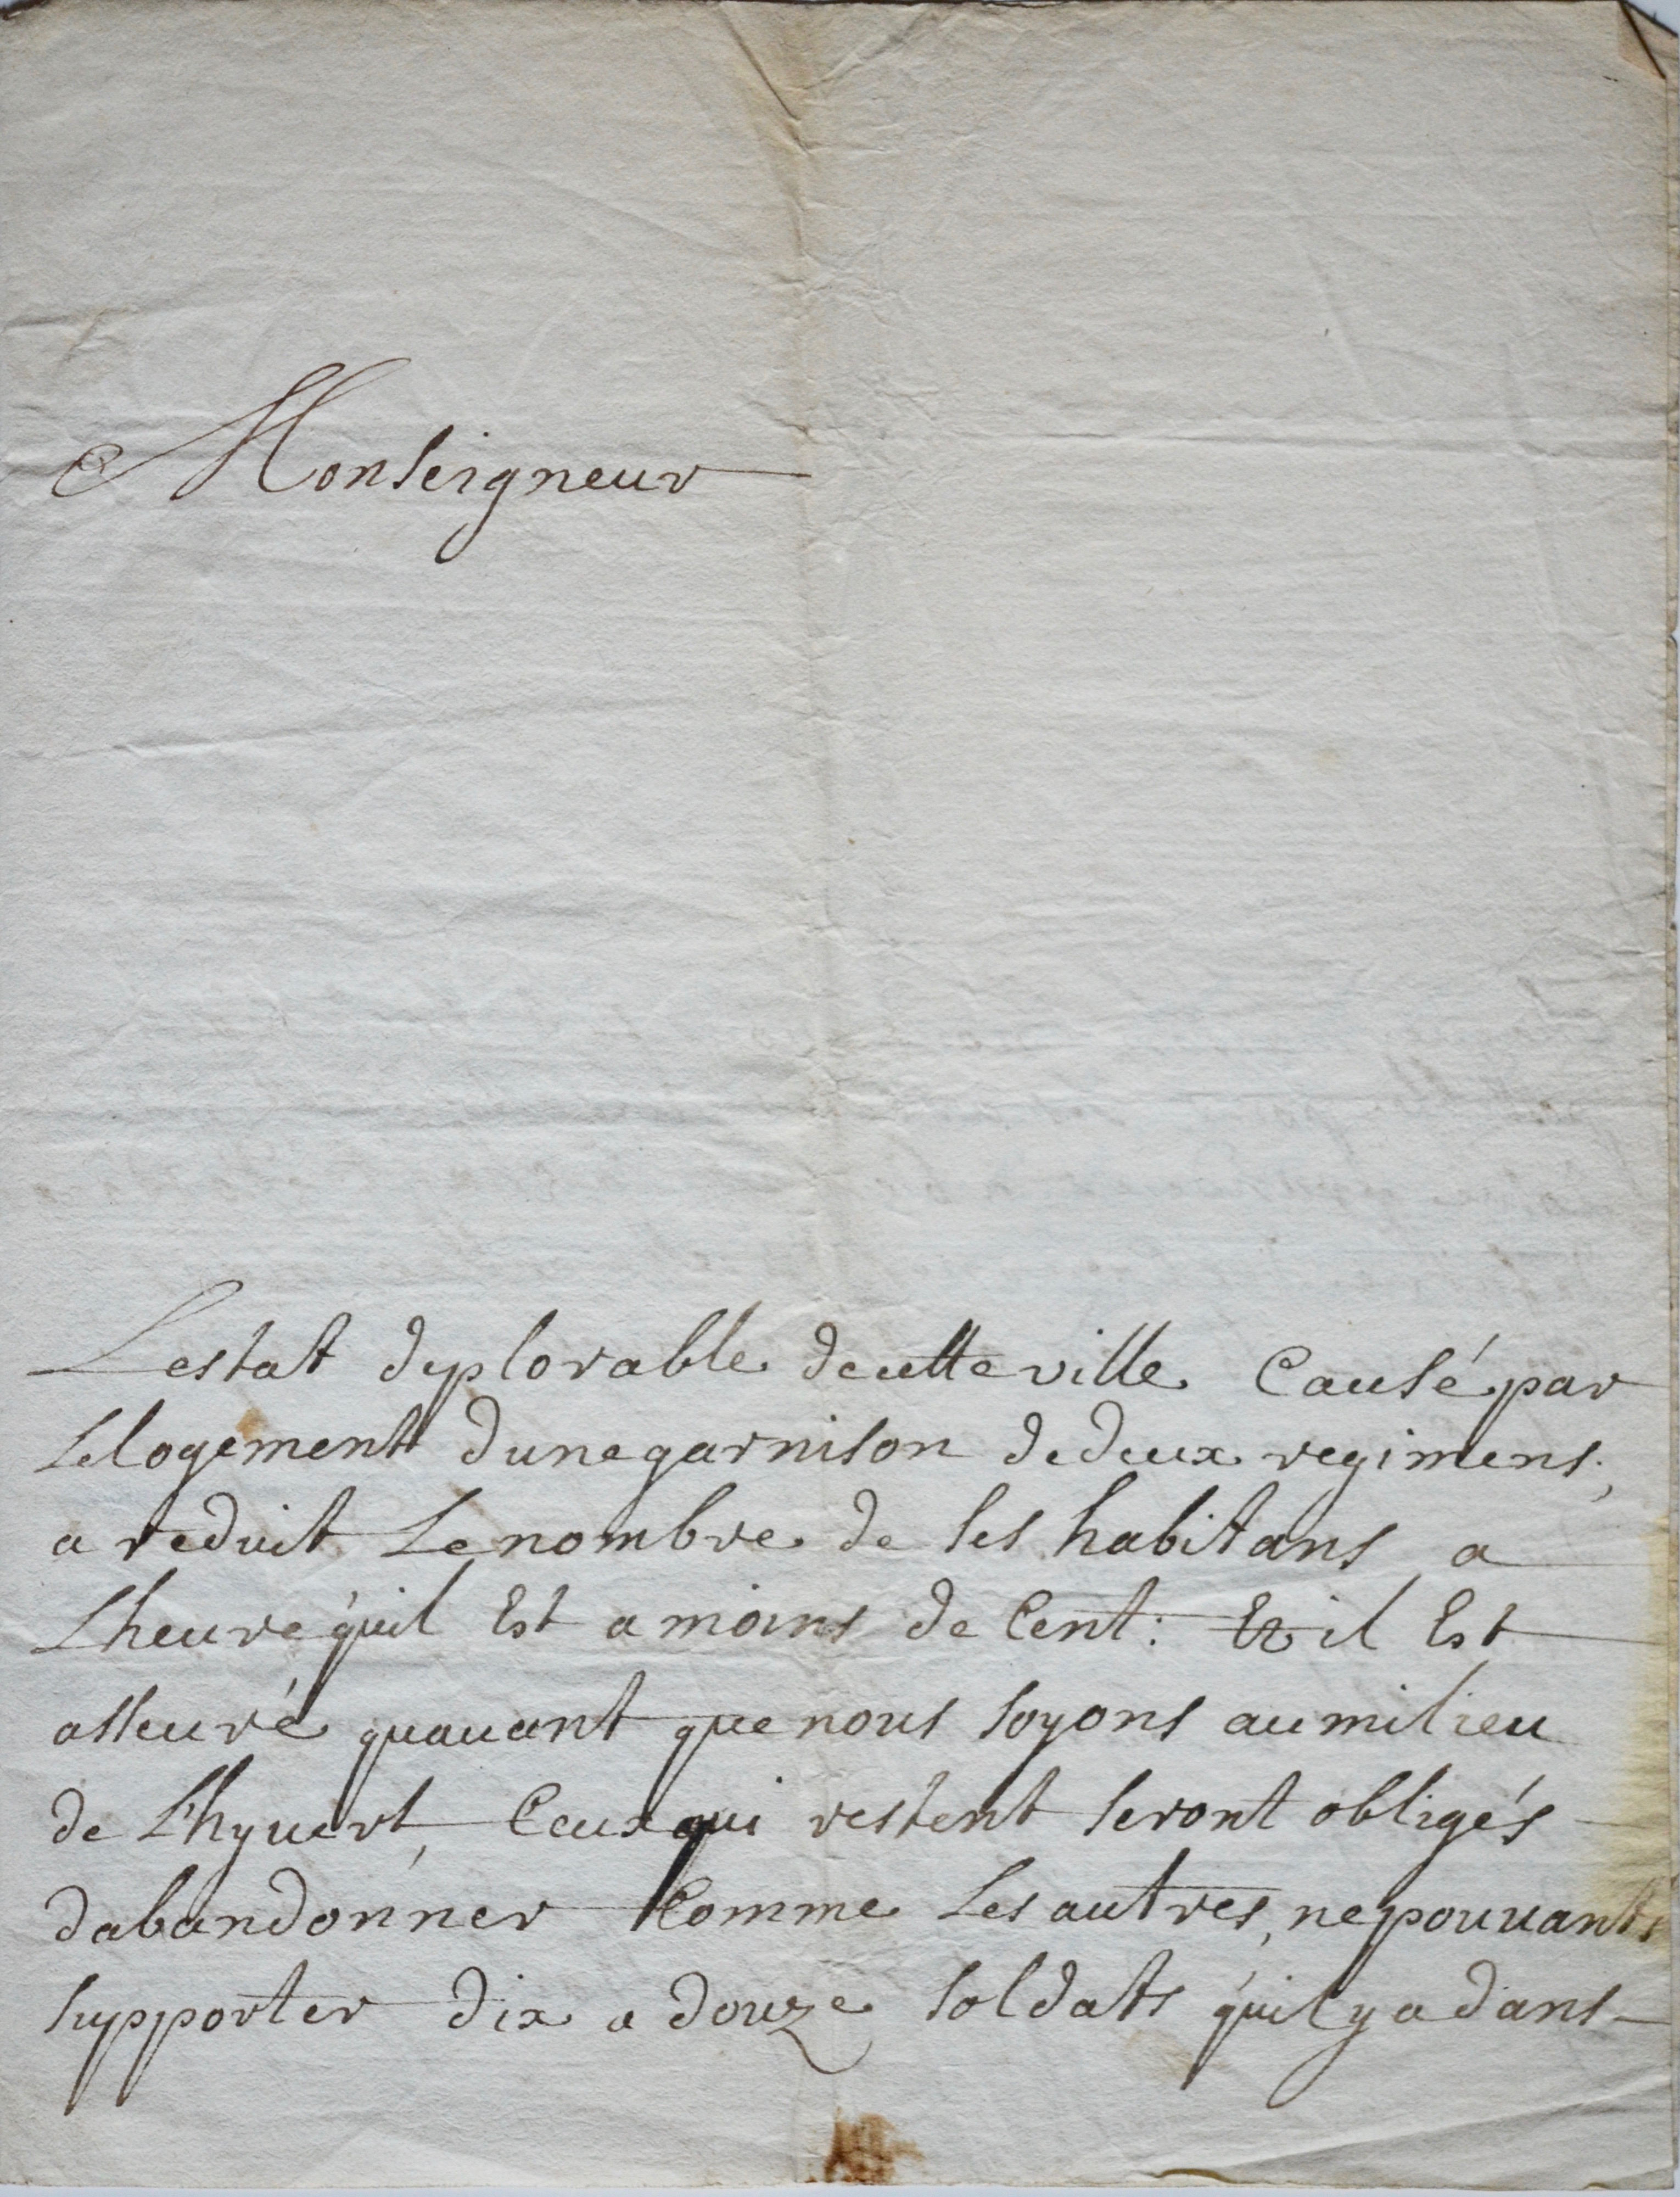 Monseigneur
Lestat deplorable de cette ville Causé par
Le logement dune garnison de deux regimens,
a reduit Le nombre de ses habitans a
Lheure quil Est a moins de Cent: Et il Est
asseuré quauant que nous soyons au milieu
de Lhyuert, Ceux qui restent seront obligés
dabandonner Comme Les autres, ne pouuants
supporter dix a douze soldats quil y a dans